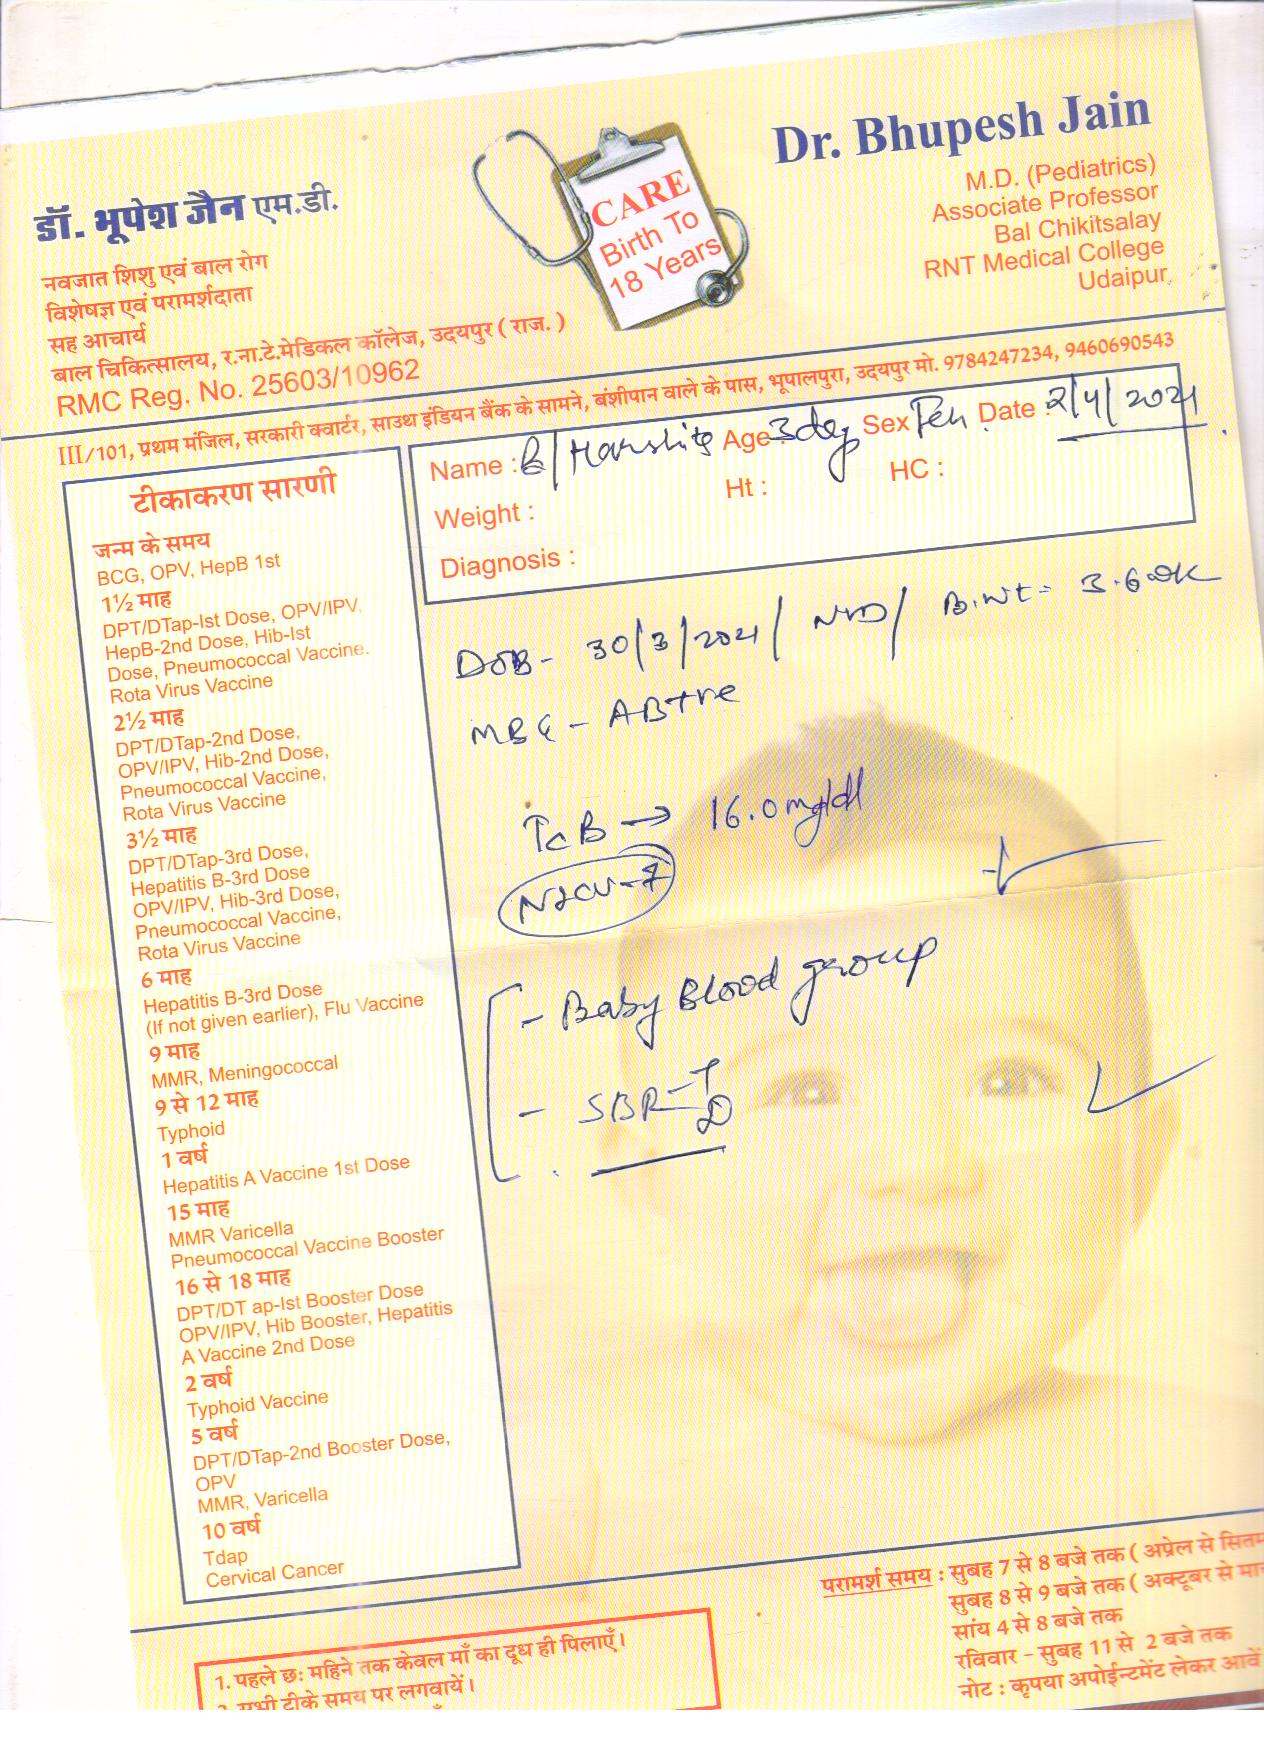 डॉ. भूपेश जैन एम.डी.
नवजात शिशु एवं बाल रोग
विशेषज्ञ एवं परामर्शदाता
सह आचार्य
बाल चिकित्सालय, र.ना.टे.मेडिकल कॉलेज, उदयपुर ( राज. )
RMC Reg. No. 25603/10962
CARE
Birth To
18 Years
Dr. Bhupesh Jain
M.D. (Pediatrics)
Associate Professor
Bal Chikitsalay
RNT Medical College
Udaipur
III/101, प्रथम मंजिल, सरकारी क्वार्टर, साउथ इंडियन बैंक के सामने, बंशीपान वाले के पास, भूपालपुरा, उदयपुर मो. 9784247234, 9460690543
Name : B/ Harshita Age : 3day Sex Fem. Date : 2/4/2021
Weight : Ht : HC :
Diagnosis :
DOB - 30/3/2021 / NVD / B.wt -
MBG - AB+ve
TcB → 16.0 mg/dl
- Baby Blood group
- SBR - T
D
टीकाकरण सारणी
जन्म के समय
BCG, OPV, HepB 1st
1½ माह
DPT/DTap-Ist Dose, OPV/IPV,
HepB-2nd Dose, Hib-Ist
Dose, Pneumococcal Vaccine.
Rota Virus Vaccine
2½ माह
DPT/DTap-2nd Dose,
OPV/IPV, Hib-2nd Dose,
Pneumococcal Vaccine,
Rota Virus Vaccine
3½ माह
DPT/DTap-3rd Dose,
Hepatitis B-3rd Dose
OPV/IPV, Hib-3rd Dose,
Pneumococcal Vaccine,
Rota Virus Vaccine
6 माह
Hepatitis B-3rd Dose
(If not given earlier), Flu Vaccine
9 माह
MMR, Meningococcal
9 से 12 माह
Typhoid
1 वर्ष
Hepatitis A Vaccine 1st Dose
15 माह
MMR Varicella
Pneumococcal Vaccine Booster
16 से 18 माह
DPT/DT ap-Ist Booster Dose
OPV/IPV, Hib Booster, Hepatitis
A Vaccine 2nd Dose
2 वर्ष
Typhoid Vaccine
5 वर्ष
DPT/DTap-2nd Booster Dose,
OPV
MMR, Varicella
10 वर्ष
Tdap
Cervical Cancer
परामर्श समय : सुबह 7 से 8 बजे तक ( अप्रेल से
सुबह 8 से 9 बजे तक ( अक्टूबर से
सांय 4 से 8 बजे तक
रविवार - सुबह 11 से 2 बजे तक
नोट : कृपया अपोईन्टमेंट लेकर आवें
1. पहले छः महिने तक केवल माँ का दूध ही पिलाएँ।
2. सभी टीके समय पर लगवायें।